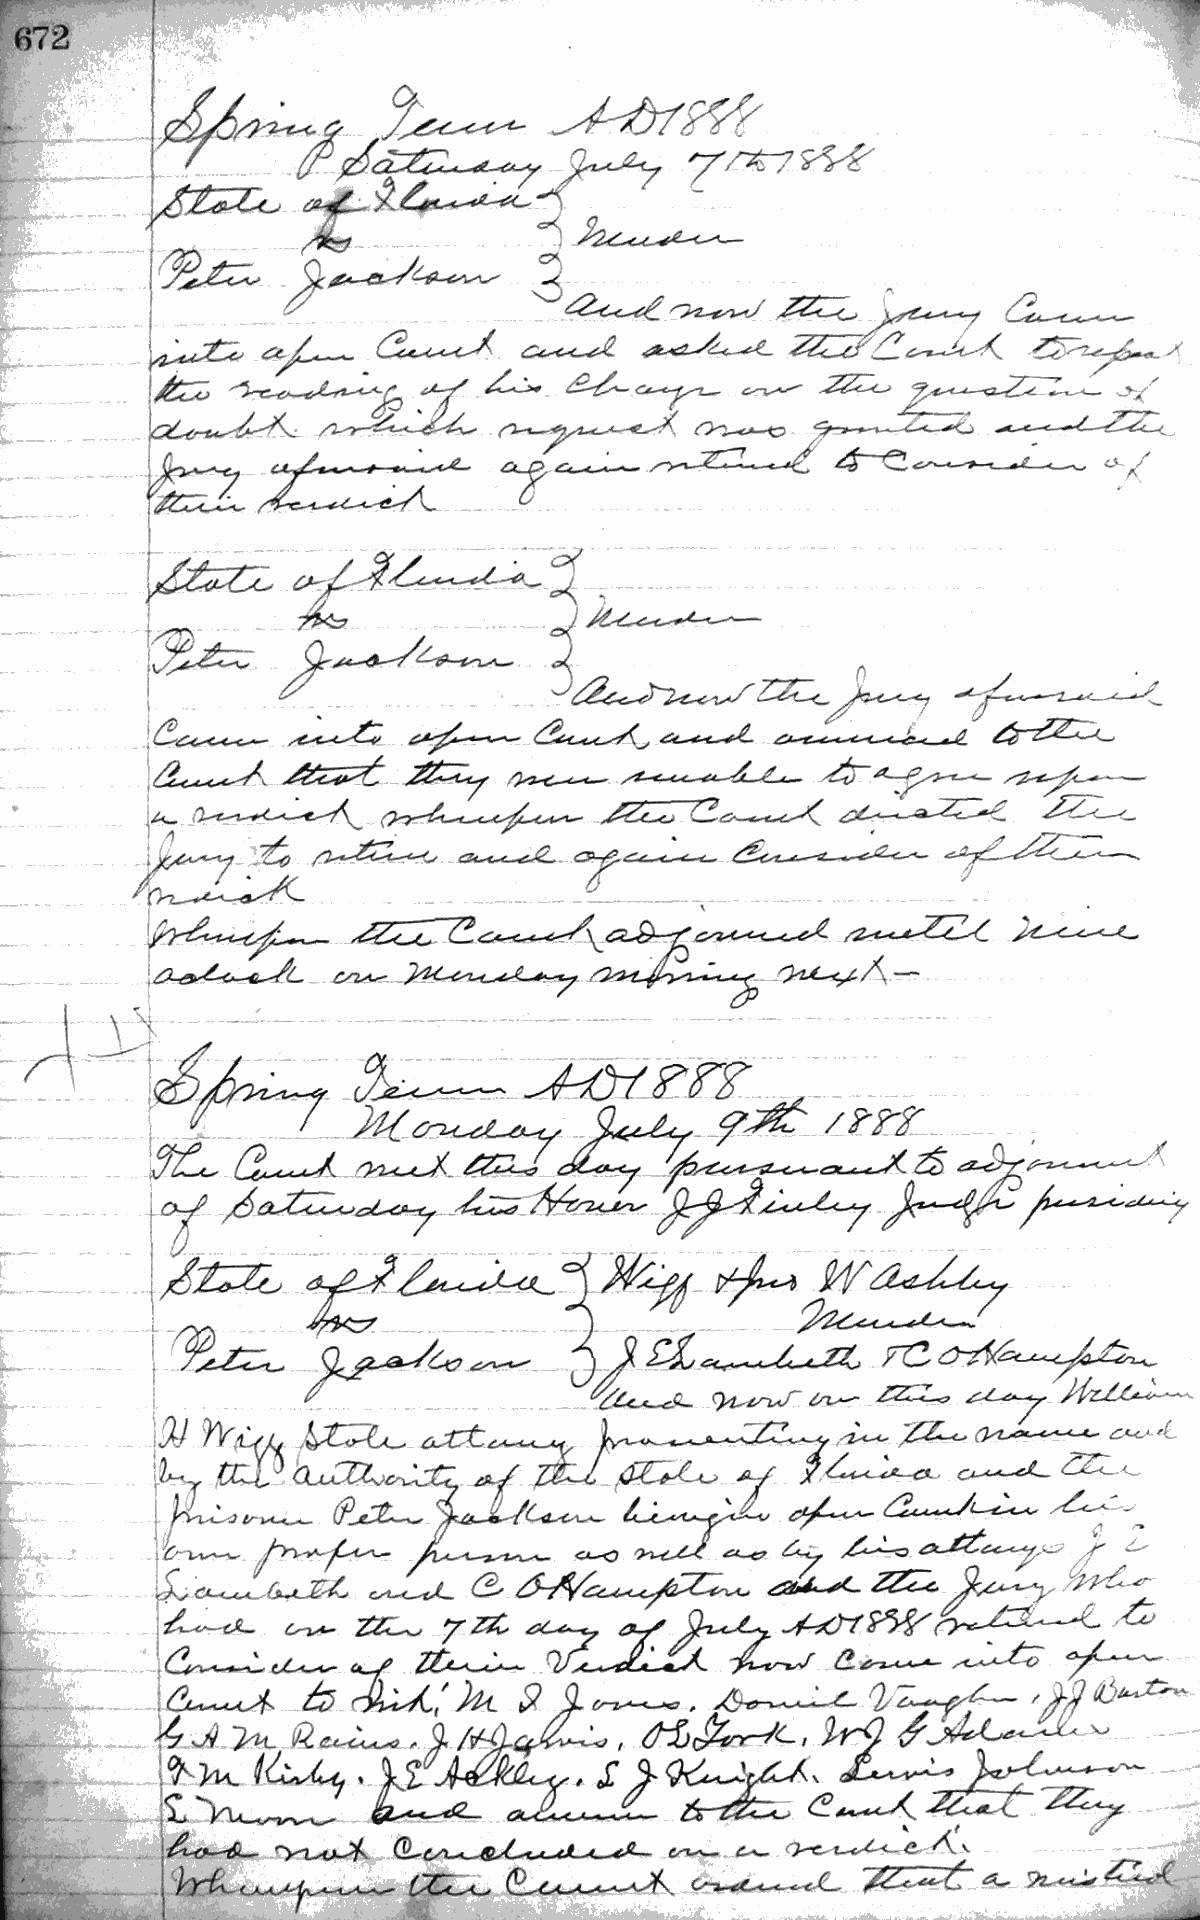 672
Spring Term AD 1888
Saturday July 7th 1888
State of Florida
vs
Murder
Peter Jackson
And now the Jury Came
into open Court and asked the Court to repeat
the reading of his Charge on the question of
doubt which request was granted and the
Jury aforesaid again retired to Consider of
their verdict
State of Florida
vs
Murder
Peter Jackson
And now the Jury aforesaid
Came into open Court and announced to the
Court that they were unable to agree upon
a verdict whereupon the Court directed the
Jury to retire and again Consider of their
verdict
Whereupon the Court adjourned until nine
oclock on Monday morning next—
Spring Term AD 1888
Monday July 9th 1888
The Court met this day pursuant to adjournment
of Saturday his Honor J J Finley Judge presiding
State of Florida
Wigg & Jno W Ashby
vs
Murder
Peter Jackson
J E Lambeth & C O Hampton
And now on this day William
H Wigg State attorney prosecuting in the name and
by the authority of the State of Florida and the
prisoner Peter Jackson being in open Court in his
own proper person as well as by his attorneys J E
Lambeth and C O Hampton and the Jury who
had on the 7th day of July AD 1888 retired to
Consider of their Verdict now Come into open
Court to wit: M I Jones. Daniel Vaughn, J J Barton
G A M Rains. J H Jarvis, O L York, W J G Adams
F M Kirby. J E Ackley. S J Knight. Lewis Johnson
S Moon and announce to the Court that they
had not Concluded on a verdict.
Whereupon the Court ordered that a mistrial